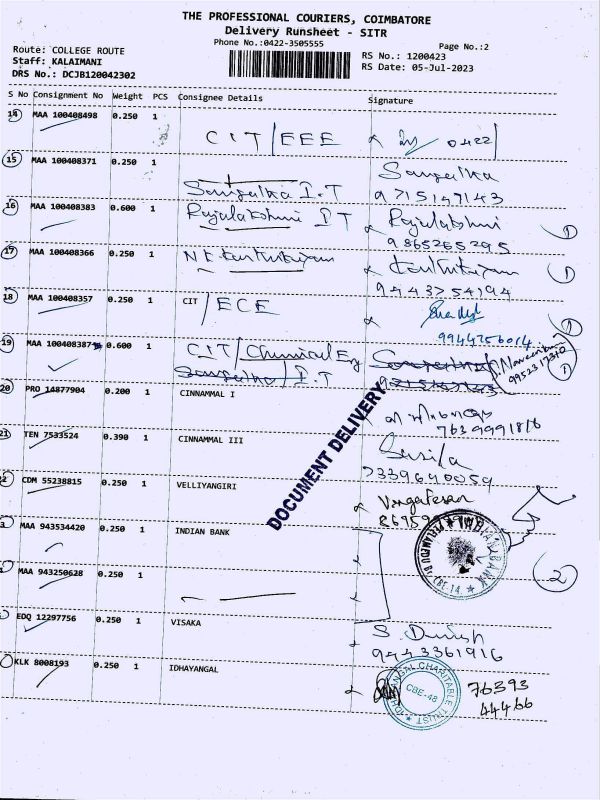 THE PROFESSIONAL COURIERS, COIMBATORE
Delivery Runsheet - SITR
Phone No.:0422-3505555
Page No.:2
Route: COLLEGE ROUTE
Staff: KALAIMANI
DRS No.: DCJB120042302
RS No.: 1200423
RS Date: 05-Jul-2023
S No Consignment No Weight PCS Consignee Details Signature
14 MAA 100408498 0.250 1 CIT/EEE 0422
15 MAA 100408371 0.250 1 Sangeetha I.T Sangeetha
9715147143
16 MAA 100408383 0.600 1 Rajalakshmi IT Rajalakshmi
9865265295 1
17 MAA 100408366 0.250 1 N K Karthikeyan Karthikeyan
9443754194 1
18 MAA 100408357 0.250 1 CIT/ECE
9944756014 1
19 MAA 100408387 0.600 1 CIT/Chemical Eng
Sangeetha I.T 9715147143
9952317310 1
20 PRO 14877904 0.200 1 CINNAMMAL I
7639991816
21 TEN 7533524 0.390 1 CINNAMMAL III Susila
7339640059
CDM 55238815 0.250 1 VELLIYANGIRI
MAA 943534420 0.250 1 INDIAN BANK
MAA 943250628 0.250 1 2
EDQ 12297756 0.250 1 VISAKA S. Dinesh
9443361916
KLK 8008193 0.250 1 IDHAYANGAL
76393
44466
DOCUMENT DELIVERY
IDHAYANGAL CHARITABLE TRUST
CBE-48